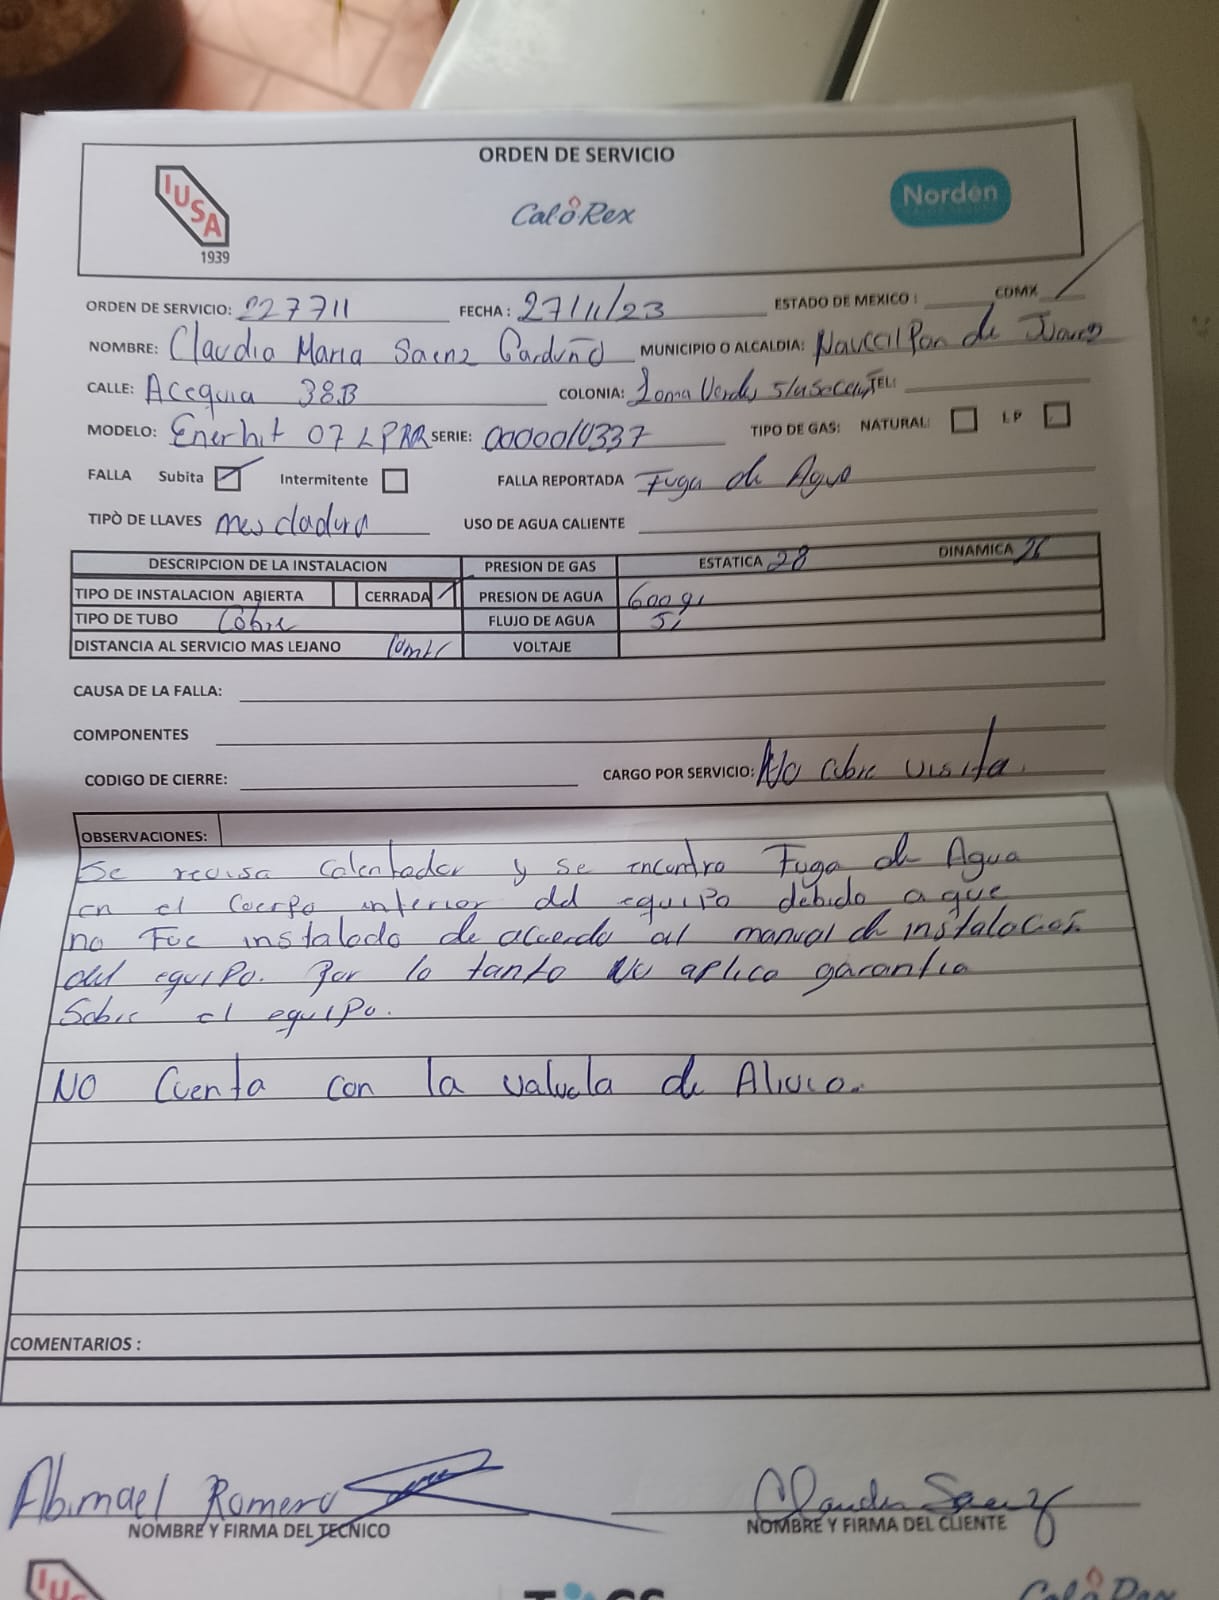 ORDEN DE SERVICIO
IUSA
1939
CaloRex
Nordën
ORDEN DE SERVICIO: 227711 FECHA: 27/11/23 ESTADO DE MEXICO: CDMX
NOMBRE: Claudia Maria Saenz Garduño MUNICIPIO O ALCALDIA: Naucalpan de Juarez
CALLE: Acequia 38B COLONIA: Loma Verdes 5/a Seccion TEL:
MODELO: Enerhit 07 LPRR SERIE: 0000010337 TIPO DE GAS: NATURAL: LP
FALLA Subita Intermitente FALLA REPORTADA Fuga de Agua
TIPÒ DE LLAVES mescladura USO DE AGUA CALIENTE
DESCRIPCION DE LA INSTALACION PRESION DE GAS ESTATICA 28 DINAMICA 26
TIPO DE INSTALACION ABIERTA CERRADA PRESION DE AGUA 600 gr
TIPO DE TUBO Cobre FLUJO DE AGUA Si
DISTANCIA AL SERVICIO MAS LEJANO 10mtr VOLTAJE
CAUSA DE LA FALLA:
COMPONENTES
CODIGO DE CIERRE: CARGO POR SERVICIO: No cubre visita.
OBSERVACIONES:
Se revisa calentador y se encontro Fuga de Agua
en el cuerpo interior del equipo debido a que
no Fue instalado de acuerdo al manual de instalacion
del equipo. Por lo tanto No aplica garantia
Sobre el equipo.
NO Cuenta con la valvula de Alivio.
COMENTARIOS :
Abimael Romero Claudia Saenz
NOMBRE Y FIRMA DEL TECNICO NOMBRE Y FIRMA DEL CLIENTE
IUS CaloRex